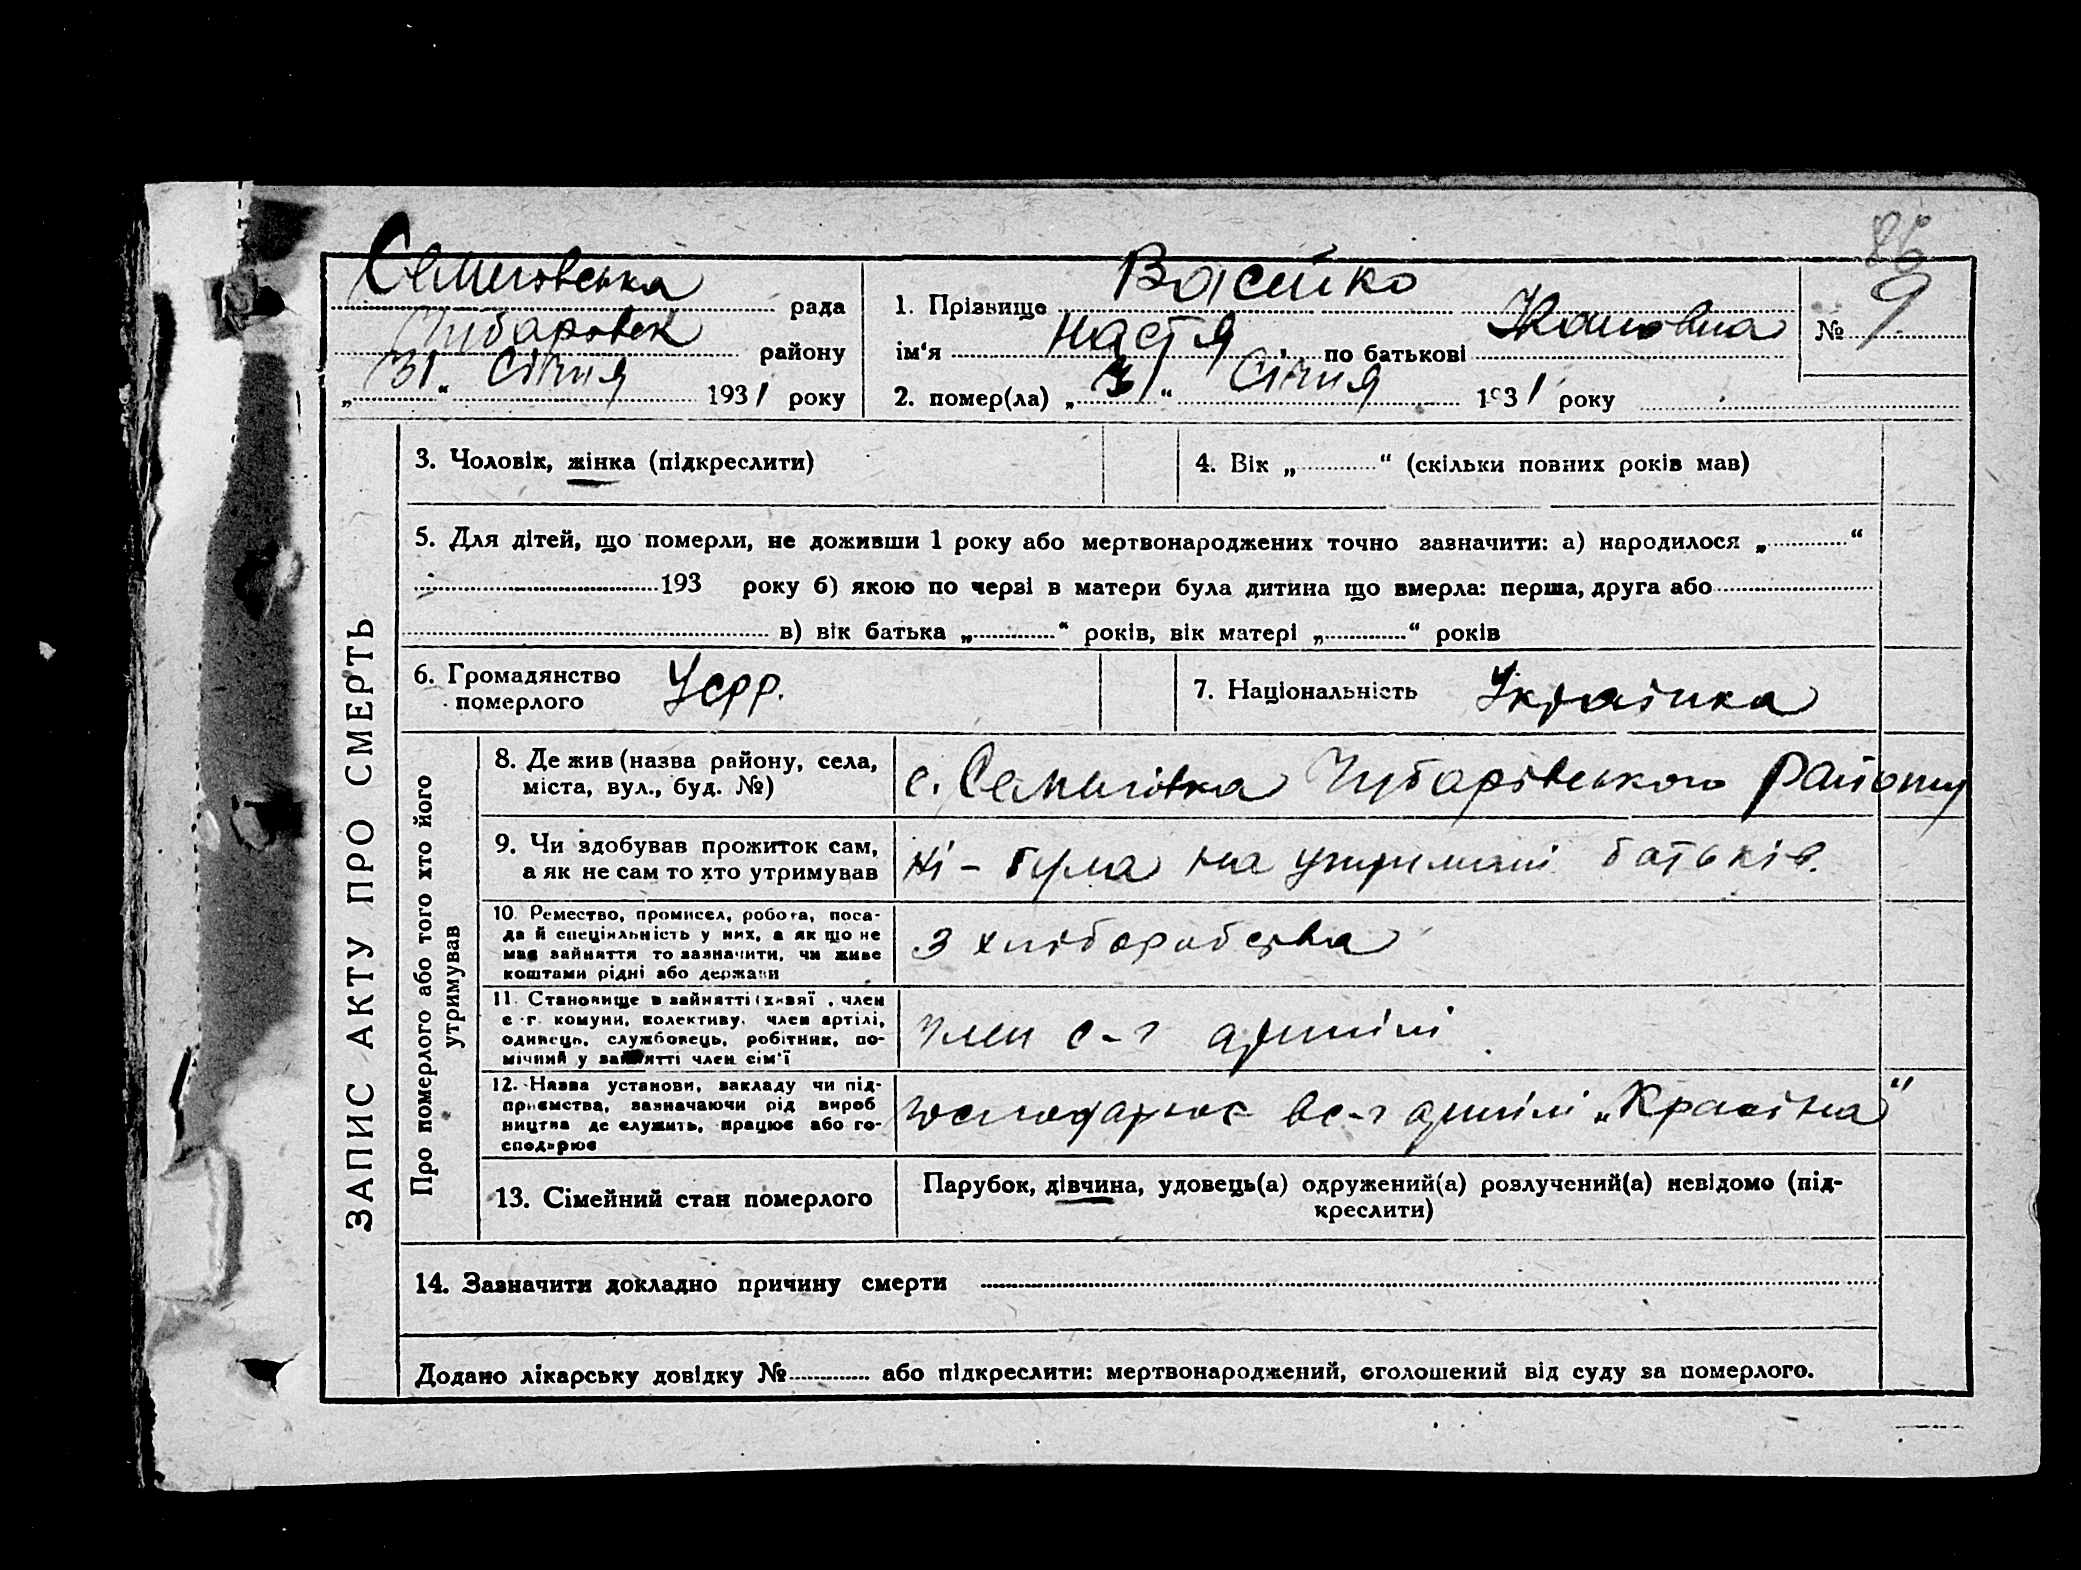 86
Семеновська рада
Чубаровск району
„31“ Січня 1931 року
1. Прізвище Васейко
ім‘я Настя, по батькові
№ 9
2. помер(ла) „31“ Січня 1931 року
ЗАПИС АКТУ ПРО СМЕРТЬ
3. Чоловік, жінка (підкреслити)
4. Вік „ “ (скільки повних років мав)
5. Для дітей, що померли, не доживши 1 року або мертвонароджених точно зазначити: а) народилося „ “
193 року б) якою по черзі в матери була дитина що вмерла: перша, друга або
в) вік батька „ “ років, вік матері „ “ років
6. Громадянство
померлого
Усрр.
7. Національність Українка
Про померлого або того хто його
утримував
8. Де жив (назва району, села,
міста, вул., буд. №)
с. Семенівка Чубарівського району
9. Чи здобував прожиток сам,
а як не сам то хто утримував
Ні – була на утриманні батьків.
10. Ремество, промисел, робота, поса-
да й спеціяльність у них, а як що не
мав зайняття то зазначити, чи живе
коштами рідні або держави
З хліборобства
11. Становище в зайнятті (хазяї, член
с.-г. комуни, колективу, член артілі,
одинець, службовець, робітник, по-
мічний у зайнятті член сім‘ї
член с-г артілі
12. Назва установи, закладу чи під-
приємства, зазначаючи рід вироб
ництва де служить, працює або го-
сподарює
господарює в с-г артілі „Країна“
13. Сімейний стан померлого
Парубок, дівчина, удовець(а) одружений(а) розлучений(а) невідомо (під-
креслити)
14. Зазначити докладно причину смерти
Додано лікарську довідку № або підкреслити: мертвонароджений, оголошений від суду за померлого.